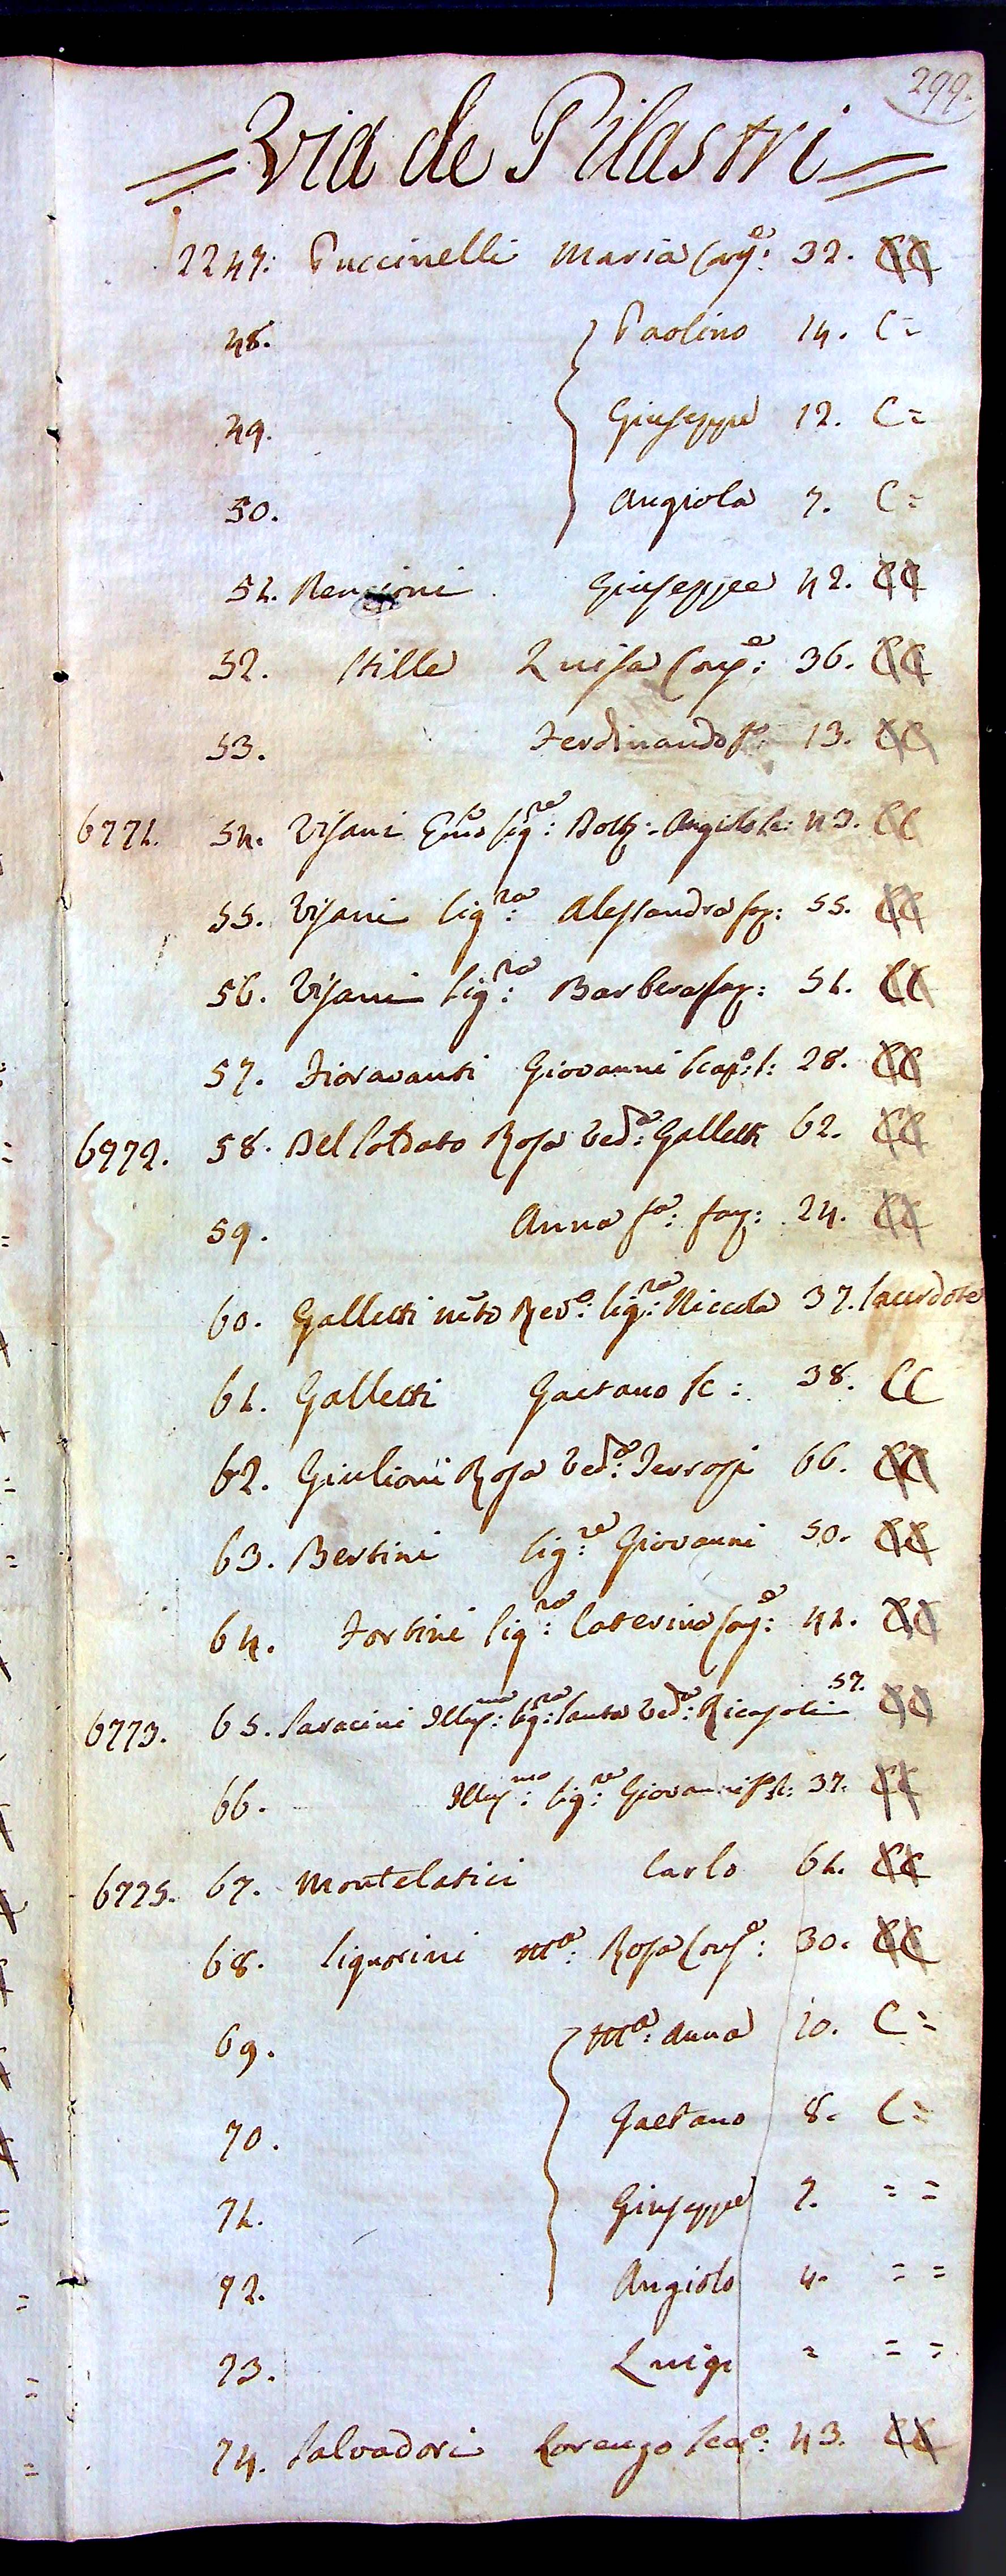 299.
= Via de Pilastri =
2247. Puccinelli Maria Cong:e 32. CC
48. Paolino 14. C=
49. Giuseppe 12. C=
50. Angiola 7. C=
51. Rencioni Giuseppee 42. CC
52. Stille Luisa Cong:e 36. CC
53. Ferdinando fo: 13. CC
6771. 54. Visani Sig:re Dott: Angiolo Sc: 43. CC
55. Visani Sig:ra Alessandra fag: 55. CC
56. Visani Sig:ra Barbera fag: 51. CC
57. Fioravanti Giovanni Scap:o S: 28. CC
6772. 58. Del Soldato Rosa Ved:a Galletti 62. CC
59. Anna fa: fag: 24. CC
60. Galletti Revo: Sig:re Niccola 37. Sacerdote
61. Galletti Gaetano Sc: 38. CC
62. Giulioni Rosa Ved:a 66. CC
63. Bertini Sig:re Giovanni 50. CC
64. Fortini Sig:ra Caterina Cong:e 41. CC
6773. 65. Saracini Illus:ma Sig:ra Santa Ved:a Ricasoli 57. CC
66. Illus:mo Sig:re Giovanni 37. CC
6775. 67. Montelatici Carlo 61. CC
68. Liguorini Ma: Rosa Cons:e 30. CC
69. Ma: Anna 10. C=
70. Gaetano 8. C=
71. Giuseppe 7. = =
72. Angiolo 4. = =
73. Luigi = = =
74. Salvadori Lorenzo Scap:o 43. CC